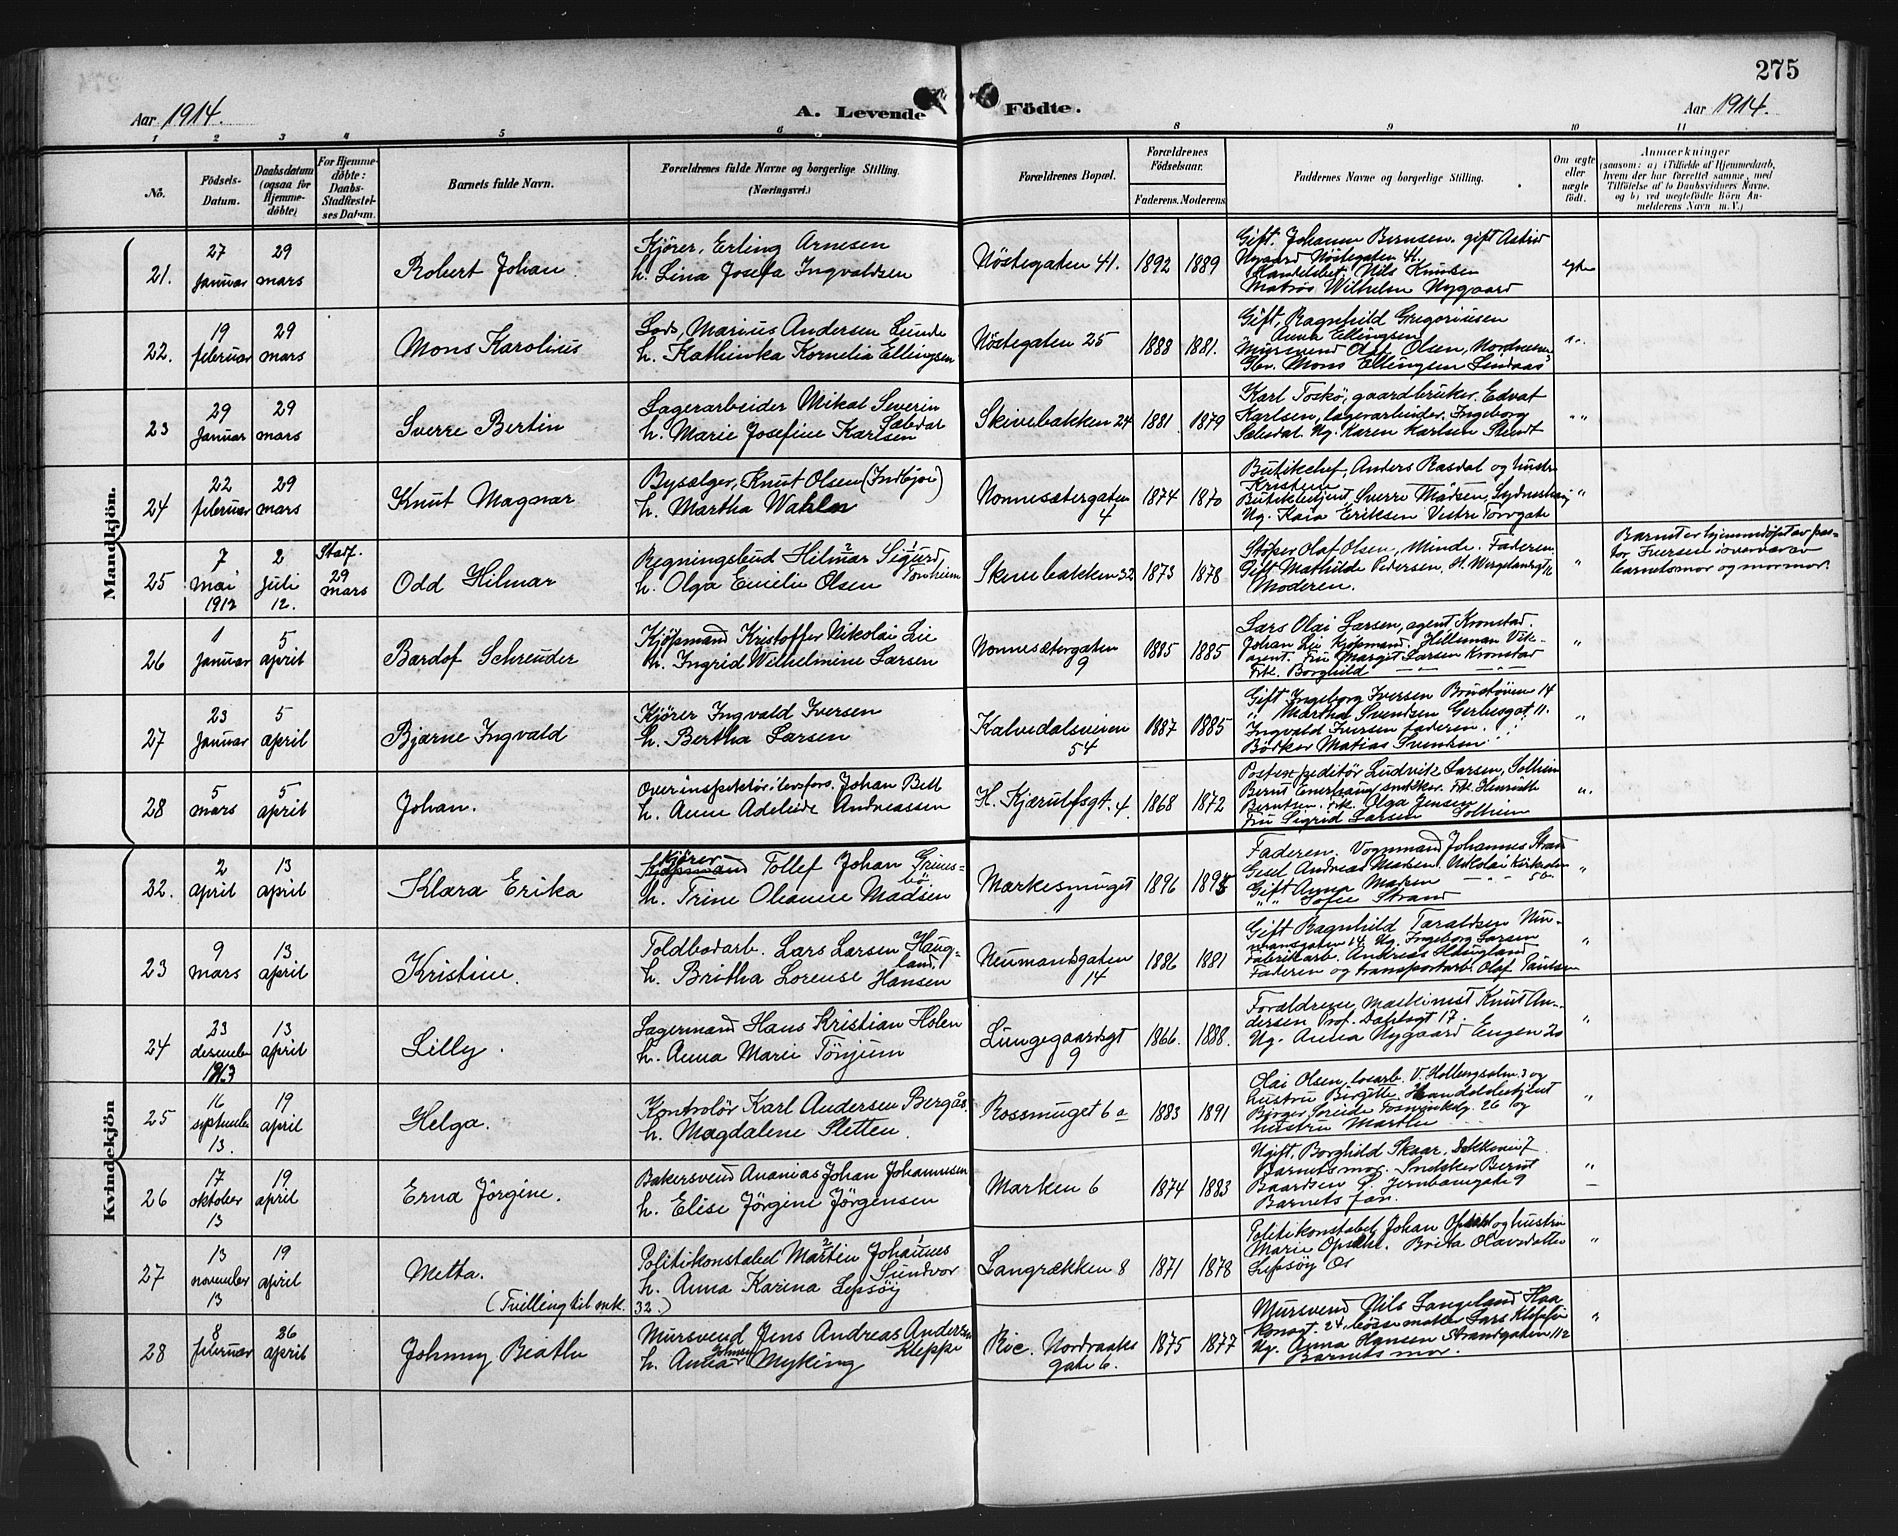 275
Aar 1914.
A. Levende Födte.
Aar 1914.
1 2 3 4 5 6 8 9 10 11
No.
Födsels-Datum.
Daabsdatum (ogsaa for Hjemme-döbte)
For Hjemme-döbte: Daabs-Stadfæstel-ses Datum.
Barnets fulde Navn.
Forældrenes fulde Navne og borgerlige Stilling. (Næringsvei.)
Forældrenes Bopæl.
Forældrenes Födselsaar.
Faderens. Moderens.
Faddernes Navne og borgerlige Stilling.
Om ægte eller uægte födt.
Anmærkninger
(saasom: a) i Tilfælde af Hjemmedaab, hvem der har forrettet samme, med Tilföielse af to Daabsvidners Navne. og b) ved uægtefödte Börn An-melderens Navn m. V.)
Mandkjön.
21. 27 januar 29 mars Robert Johan
Kjörer, Erling Arnesen
h. Lina Josefa Ingvaldsen
Nöstegaten 41. 1892 1889
Gift. Johanne Bernsen. gift Astrid
Nygaard Nöstegaten 41.
Nils Knudsen
Matrös Wilhelm Nygaard
egte
22. 19 februar 29 mars Mons Karolius
Lods, Marius Andersen Lunde
h. Kathinka Kornelia Ellingsen
Nöstegaten 25 1888 1881.
Gift, Ragnhild Gregoriusen
Anna Ellingsen
Mursvend Olaf Olsen, Nordnesvei
Gbr. Mons Ellingsen Lindaas
23 29 januar 29 mars Sverre Bertin
Lagerarbeider Mikal Severin Sæbdal
h. Marie Josefine Karlsen
Skivebakken 24 1881 1879
Karl Toskö, gaardbruker. Edvat
Karlsen, lagerarbeider. Ingeborg
Sæbsdal. Ug. Karen Karlsen Stendt
" "
24 22 februar 29 mars Knut Magnar
Bysælger, Knut Olsen (Indbjoe)
h. Martha Wahln
Nonnesætergaten 4 1874 1870
Butikchef, Anders Rasdal og hustru
Kristine
Butikbetjent, Sverre Madsen, Sydneshaug
Ug. Kaia Eriksen Vestre Torvgate
"
25 7 mai 1912 2 juli 12. Stadf. 29 mars Odd Hilmar
Regningsbud Hilmar Sigurd Tonheim
h. Olga Emelie Olsen
Skivebakken 32 1873 1878
Stöper Olaf Olsen, Minde. Faderen.
Gift Mathilde Pedersen, H. Wergelandsgt 16
Moderen.
"
Barnet er hjemmedöpt av pas-
tor Iversen i overvær av
barnets mor og mormor.
26 1 januar 5 april Bardof Schreuder
Kjöpmand Kristoffer Nikolai Lie
h. Ingrid Wilhelmine Larsen
Nonnesætergaten 9 1885 1885
Lars Olai Larsen, agent Kronstad.
Johan Lie Kjöpmand. Hilleman Vik-
agent. Fru Margit Larsen Kronstad
Frk. Borghild — " — — " —
"
27 23 januar 5 april Bjarne Ingvald
Kjörer Ingvald Iversen
h. Bertha Larsen
Kalvedalsveien 54 1887 1885
Gift Ingeborg Iversen Brustöven 14
" Martha Svendsen Gerhesgat. 11.
Ingvald Iversen faderen.
Bödker Matias Svendsen
"
28 5 mars 5 april Johan.
Overinspektör i livsfors. Johan Bell
h. Anne Adeleide Andreassen
H. Kjærulfsgt. 4. 1868 1872
Postexpeditör Ludvik Larsen, Solheim
Bernt Enerhaug snedker. Frk. Henriette
Berntsen. Frk. Olga Jensen
Fru Sigrid Larsen Solheim
"
Kvindekjön
22. 2 april 13 april Klara Erika
Kjörer Tollef Johan Grimesbö
h. Trine Oleanne Madsen
Markesmuget 1896 1895
Faderen. Vognmand Johannes Strand
Gsel Andreas Madsen Nikolai Kirkealm.
Gift Anna Madsen — " — 5 b
" " Sofie Strand
"
23 9 mars 13 april Kristine.
Toldbodarb. Lars Larsen Haugland,
h. Britha Lorense Hansen
Neumandsgaten 14 1886 1881
Gift Ragnhild Taraldsen Neu-
mansgaten 14. Ug. Ingeborg Larsen
Fabrikarb. Andreas Haugland
Faderen og transportarb. Olaf Paulsen
"
24 23 desember 1913 13 april Lilly.
Lagermand Hans Kristian Holen
h. Anna Marie Tönjum
Lungegaardsgt 9 1866. 1888.
Forældrene, Maskinist Knut An-
dersen Prof. Dahlsgt 17.
Ug. Anna Nygaard Engen 20
"
25 16 september 13. 19 april Helga.
Kontrolör Karl Andersen Bergås.
h. Magdalene Sletten.
Rossmuget 6 a 1883 1891
Olai Olsen, losarb. V. Holbergsalm. 3 og
hustru Birgitte. Handelsbetjent
Börger Soreide 26 og
hustru Marthe
"
26 17 oktober 13 19 april Erna Jörgine.
Bakersvend Ananias Johan Johannesen
h. Elise Jörgine Jörgensen
Marken 6 1874 1883
Ugift. Borghild Skaar, Dokkeveien 7
Barnets mor. Snedker Bernt
Baardsen Ö. Jernbanegate 9
Barnets far.
"
27 13 november 13 19 april Metta.
(Tvilling til mk. 32.)
Politikonstabel Martin Johannes Sundvor
h. Anna Karina Lepsöy
Langrækken 8 1871 1878
Politikonstabel Johan Opdal og hustru
Marie Opdahl. Brita Olavsdatter
Lepsöy Os
"
28 8 februar 26 april Johnny Beathe
Mursvend Jens Andreas Andersen Kleppe
h. Anna Johnsen Myking
Ric. Nordraaks gate 6. 1875 1877
Mursvend Nils Langeland Haa-
konsgt. 24, bössemaker Lars Klepsjö
Ug. Anna Hansen Strandgaten 112
Barnets mor.
"